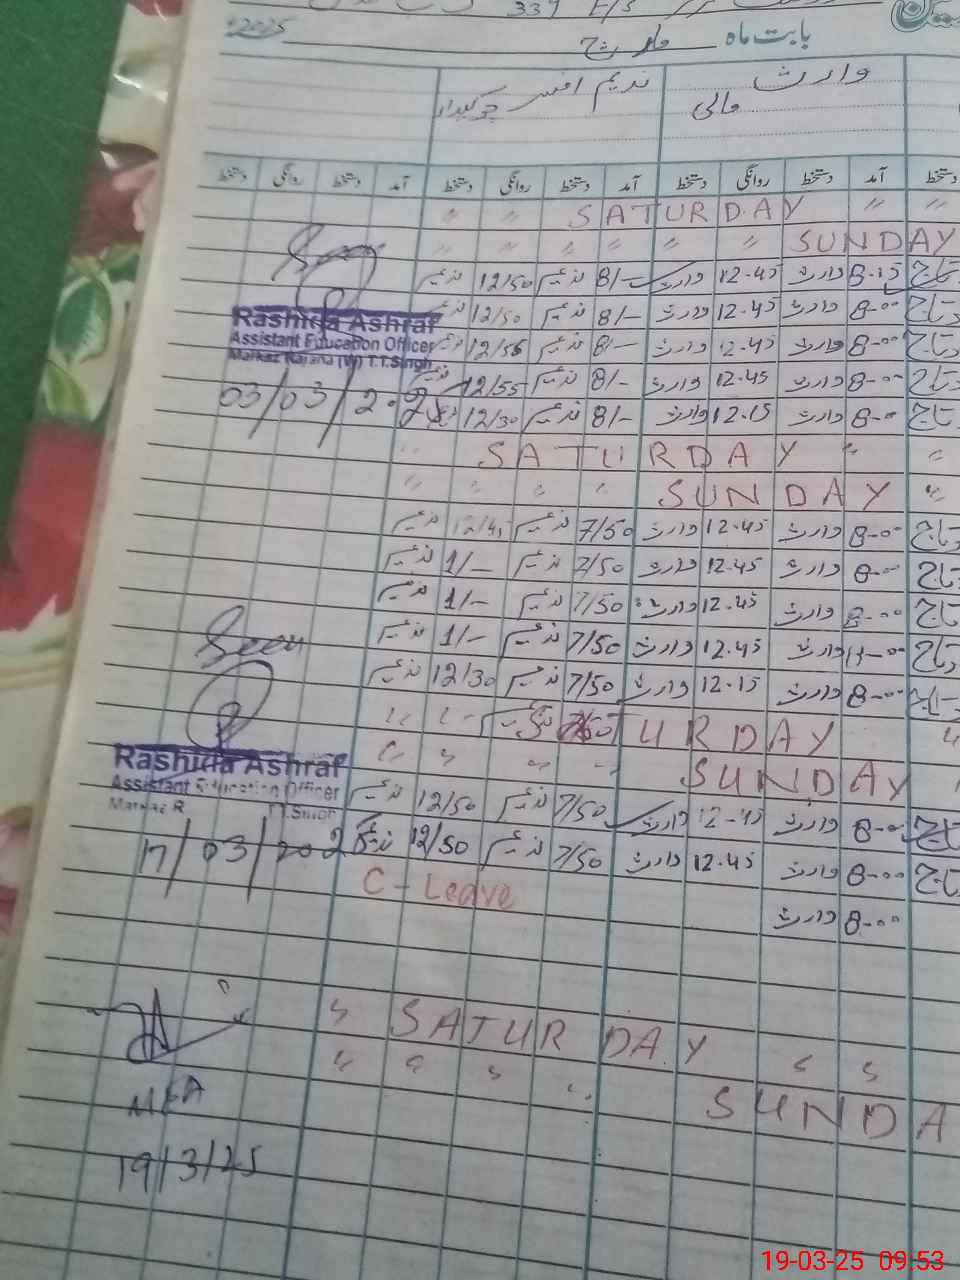 339
بابت ماہ مارچ 2025
وارث ندیم افسر
مالی چوکیدار
دستخط آمد دستخط روانگی دستخط آمد دستخط روانگی دستخط آمد دستخط روانگی دستخط
SATURDAY
SUNDAY
تاج 8-15 وارث 12-45 وارث 8/- ندیم 12/50 ندیم
تاج 8-00 وارث 12-45 وارث 8/- ندیم 12/50 ندیم
تاج 8-00 وارث 12-45 وارث 8/- ندیم 12/55 ندیم
تاج 8-00 وارث 12-45 وارث 8/- ندیم 12/55 ندیم
تاج 8-00 وارث 12-15 وارث 8/- ندیم 12/30 ندیم
Seen
Rashida Ashraf
Assistant Education Officer
Markaz Rajana (W) T.T.Singh
03/03/2025
SATURDAY
SUNDAY
تاج 8-00 وارث 12-45 وارث 7/50 ندیم 12/45 ندیم
تاج 8-00 وارث 12-45 وارث 7/50 ندیم 1/- ندیم
تاج 8-00 وارث 12-45 وارث 7/50 ندیم 1/- ندیم
تاج وارث 12-45 وارث 7/50 ندیم 1/- ندیم
تاج 8-00 وارث 12-15 وارث 7/50 ندیم 12/30 ندیم
SATURDAY
SUNDAY
تاج 8-00 وارث 12-45 وارث 7/50 ندیم 12/50 ندیم
تاج 8-00 وارث 12-45 وارث 7/50 ندیم 12/50 ندیم
8-00 وارث C-Leave
Seen
Rashida Ashraf
Assistant Education Officer
Markaz R T.T.Singh
17/03/202
SATURDAY
SUNDA
MEA
19/3/25
19-03-25 09:53